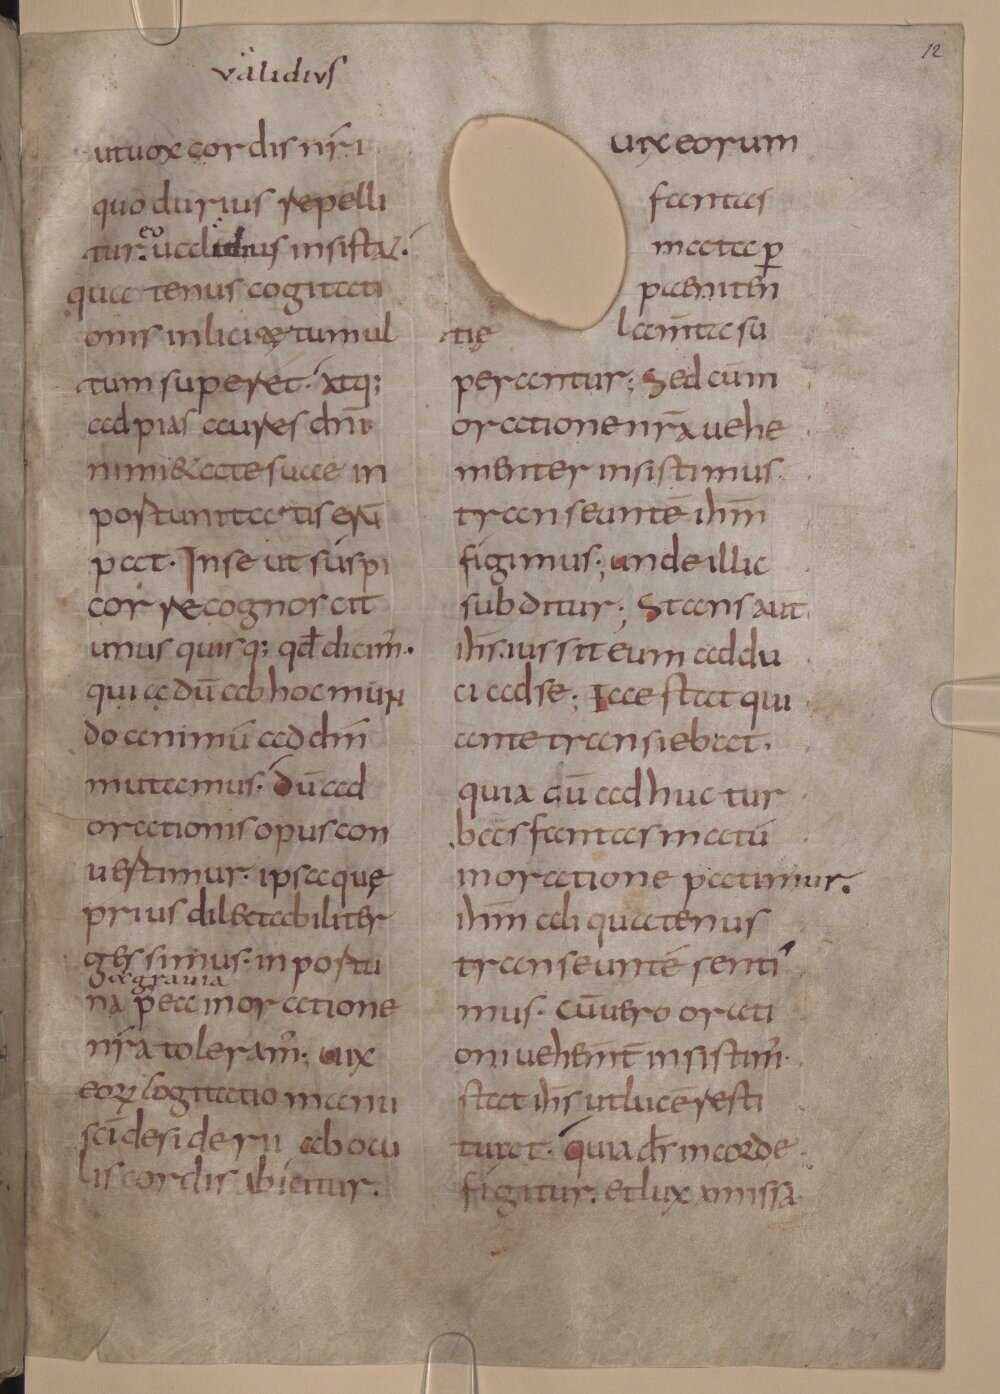 12
validius
ut uox cordis nr̄i
quo durius repelli
tur. eo ualidius insistat.
quatenus cogitati
onis inlicitę tumul
tum superet. Atq;
ad pias aures dn̄i
nimi&ate sua in
portunitatis erū
pat. In se ut suspi
cor recognoscit
unus quisq; qđ dicim̄.
qui a dū ab hoc mun
do animū ad dm̄
mutamus. dū ad
orationis opus con
uertimur. ipsa que
prius delectabiliter
gessimus. inportu
na &grauia
p̄ea in oratione
nr̄a toleram̄. uix
eorū cogitatio manu
sc̄i desiderii ab ocu
lis cordis abicitur.
uix eorum
fantas
mata p
paeniten
tię lamta su
perantur; Sed cum
oratione nr̄a uehe
menter insistimus
transeuntē ihm̄
figimus; unde illic
subditur; Stans aut
ihs̄. iussit eum addu
ci ad se; Ecce stat qui
ante transiebat.
quia cū adhuc tur
bas fantasmatū
in oratione patimur.
ihm̄ ali quatenus
transeuntē senti
mus. Cū uero orati
oni uehem̄t insistim̄.
stat ihs̄ ut lucē resti
tuat. quia ds̄ in corde
figitur. et lux amissa